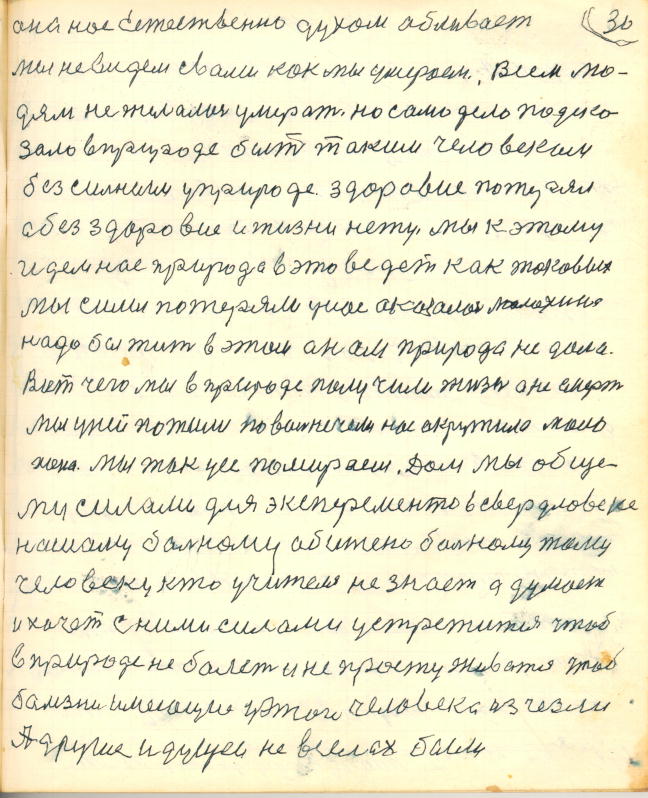 она нас естественно духом обливает
30
мы невидем свами как мы умераем. Всем лю-
дям нежилалы умерат. но само дело подска
зало вприроде быт таким человеком
безсилним уприроде. здоровие потерял
абез здоровие ижизни нету. мы кэтому
идем нас природа вэто ведет как таковых
мы сили потеряли унас аказалас
надо бы жит вэтом ана им природа не дала.
Вот чего мы вприроде получили жизн ане смерт
мы уней пожили нас акружила мало
мы так усе помираем. Дом мы обще-
ми силами для эксперементо всвердловске
нашаму болному обижено болному тому
человеку кто учителя не знает адумает
ихочет сними силами устретится чтоб
вприроде не болет ине простужыватся чтоб
болезни имеющие уэтого человека изчезли
А другие идущеи не вселас были